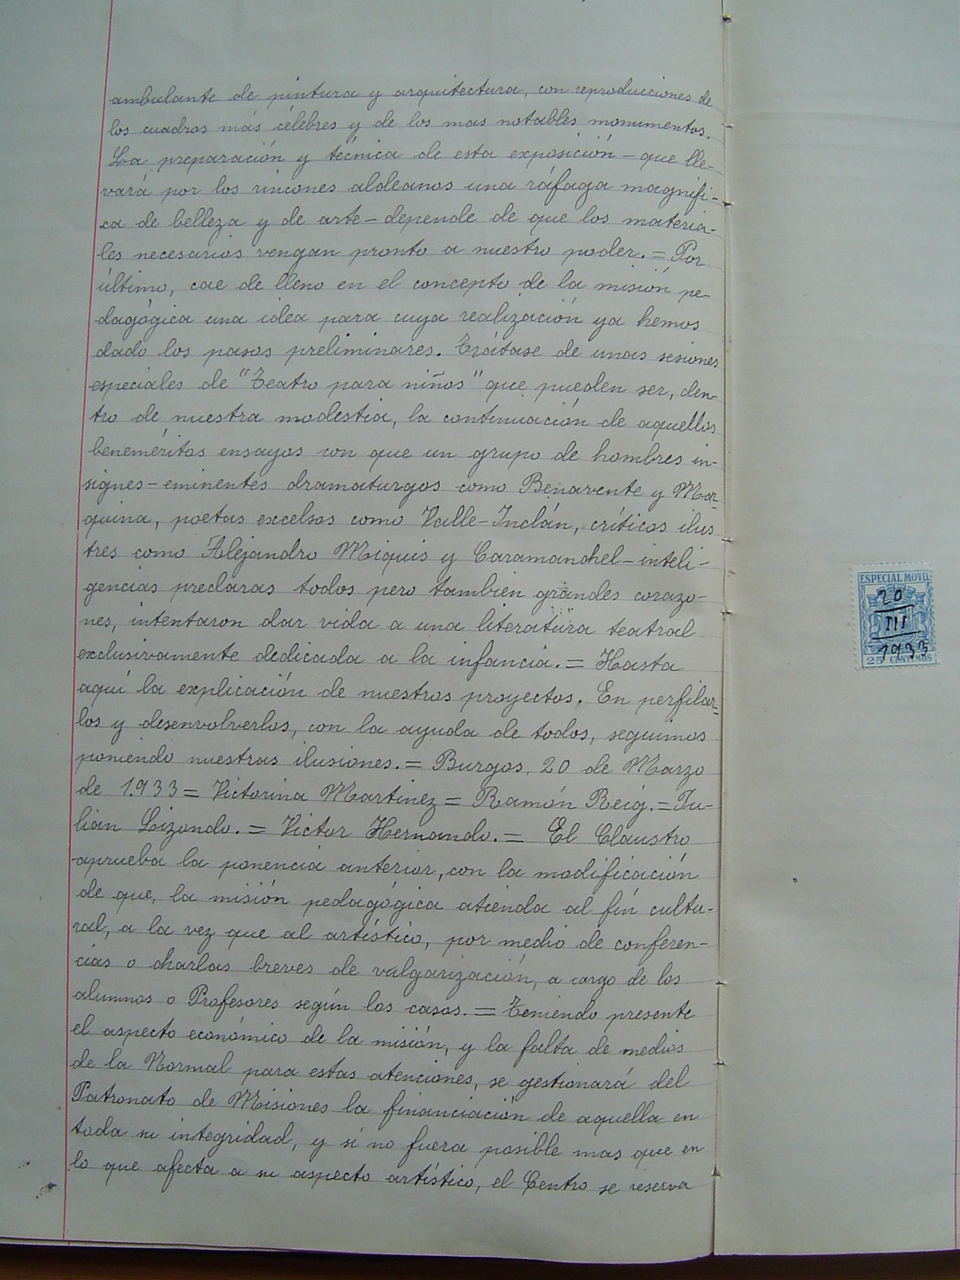 ambulante de pintura y arquitectura, con reproducciones de
los cuadros más célebres y de los mas notables monumentos.
La preparación y técnica de esta exposición - que lle-
vará por los rincones aldeanos una ráfaga magnífi-
ca de belleza y de arte - depende de que los materia-
les necesarios vengan pronto a nuestro poder. = Por
último, cae de lleno en el concepto de la misión pe-
dagógica una idea para cuya realización ya hemos
dado los pasos preliminares. Trátase de unas sesiones
especiales de "Teatro para niños" que pueden ser, den-
tro de nuestra modestia, la continuación de aquellos
beneméritos ensayos con que un grupo de hombres in-
signes - eminentes dramaturgos como Benavente y Mar-
quina, poetas excelsos como Valle-Inclán, críticos ilus
tres como Alejandro Miquis y Caramanchel - inteli-
gencias preclaras todos pero también grandes corazo-
nes, intentaron dar vida a una literatura teatral
exclusivamente dedicada a la infancia. = Hasta
aquí la explicación de nuestros proyectos. En perfilar-
los y desenvolverlos, con la ayuda de todos, seguimos
poniendo nuestras ilusiones. = Burgos, 20 de Marzo
de 1.933 = Victorina Martinez = Ramón Reig. = Ju-
lian Lizondo. = Victor Hernando. = El Claustro
aprueba la ponencia anterior, con la modificación
de que, la misión pedagógica atienda al fín cultu-
ral, a la vez que al artístico, por medio de conferen-
cias o charlas breves de valgarización, a cargo de los
alumnos o Profesores según los casos. = Teniendo presente
el aspecto económico de la misión, y la falta de medios
de la Normal para estas atenciones, se gestionará del
Patronato de Misiones la financiación de aquella en
toda su integridad, y si no fuera posible mas que en
lo que afecta a su aspecto artístico, el Centro se reserva
ESPECIAL MOVIL
20
III
1933
25 CENTIMOS